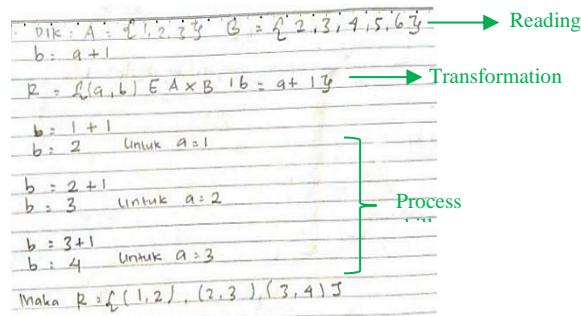 Dik : A = {1, 2, 3} B = {2, 3, 4, 5, 6} Reading
b = a+1
R = {(a, b) E A x B | b = a+ 1} Transformation
b = 1 + 1
b = 2 Untuk a = 1
b = 2 +1
b = 3 Untuk a = 2
Process
b = 3+1
b = 4 Untuk a = 3
Maka R = {(1,2), (2,3), (3,4)}